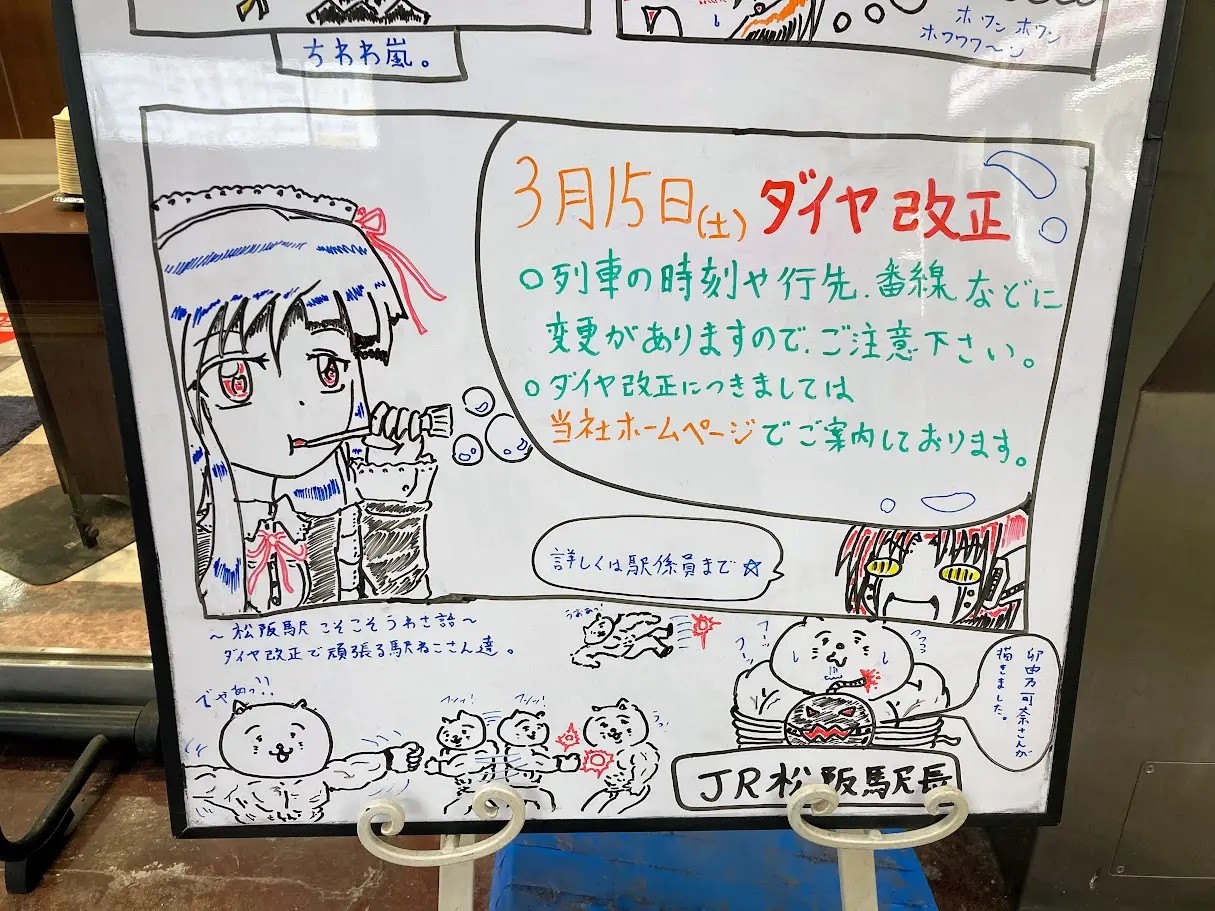 ホワン ホワン
ホワワワ〜ン
ちわわ嵐。
3月15日(土)ダイヤ改正
○列車の時刻や行先、番線などに
変更がありますので、ご注意下さい。
○ダイヤ改正につきましては
当社ホームページでご案内しております。
詳しくは駅係員まで☆
〜松阪駅こそこそうわさ話〜
ダイヤ改正で頑張る駅ねこさん達。
うおおっ!
でやあっ!!
フンッ!
フンッ!
うっ!
フーッ
フーッ
JR松阪駅長
描きました。